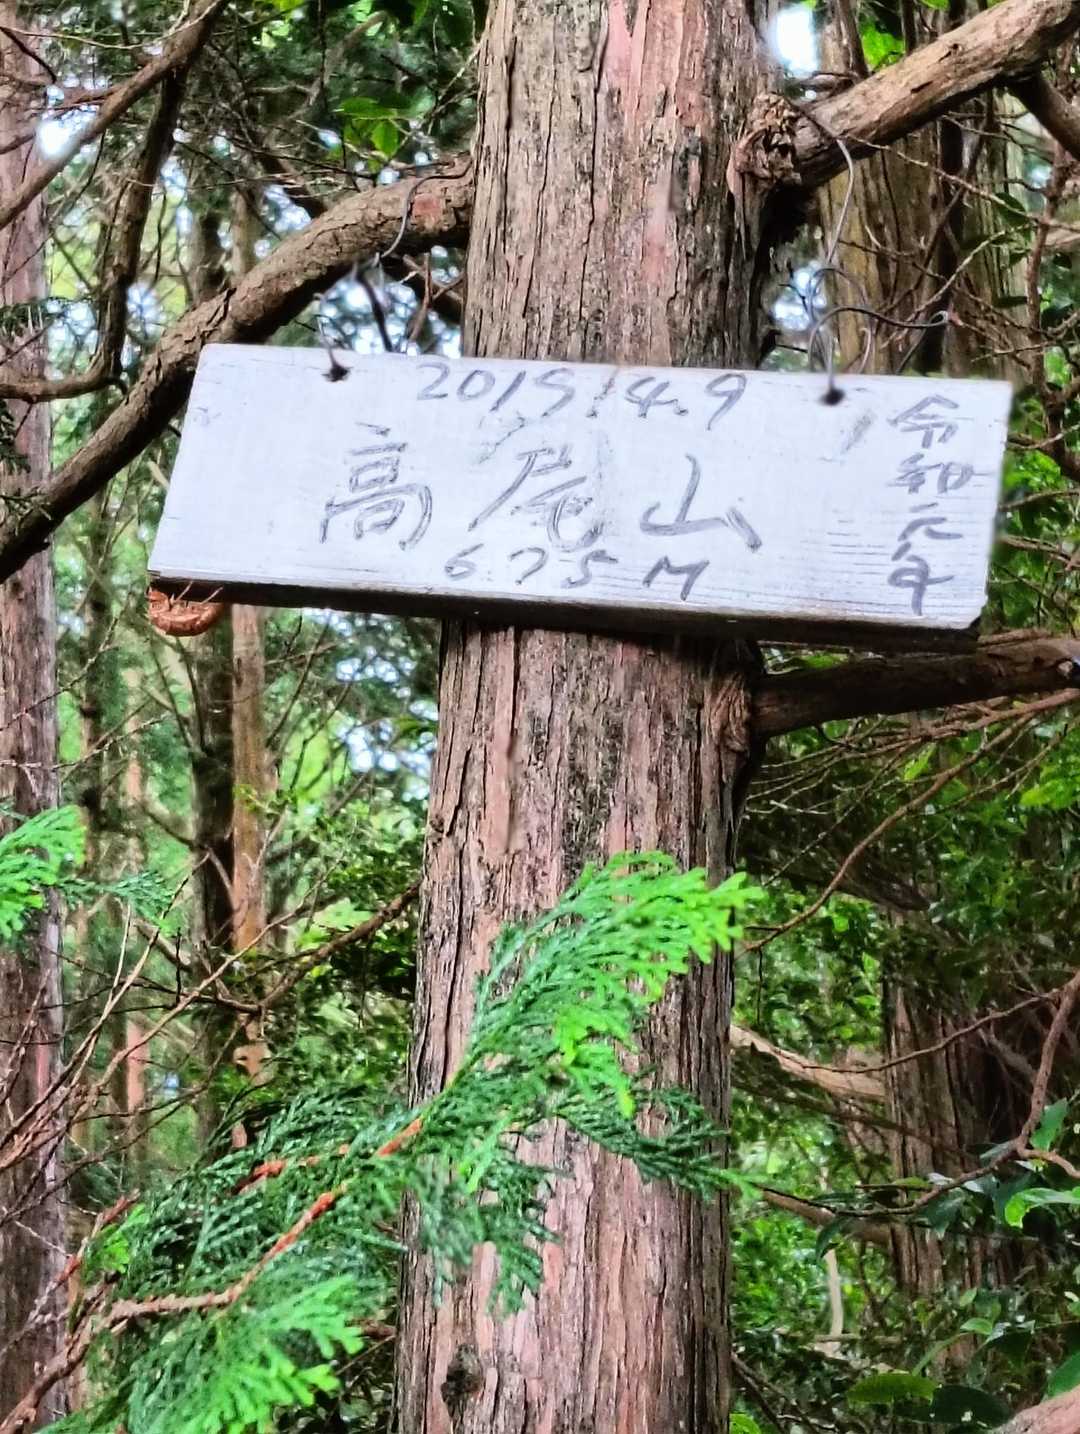 2019.4.9
高尾山
675M
令和元年